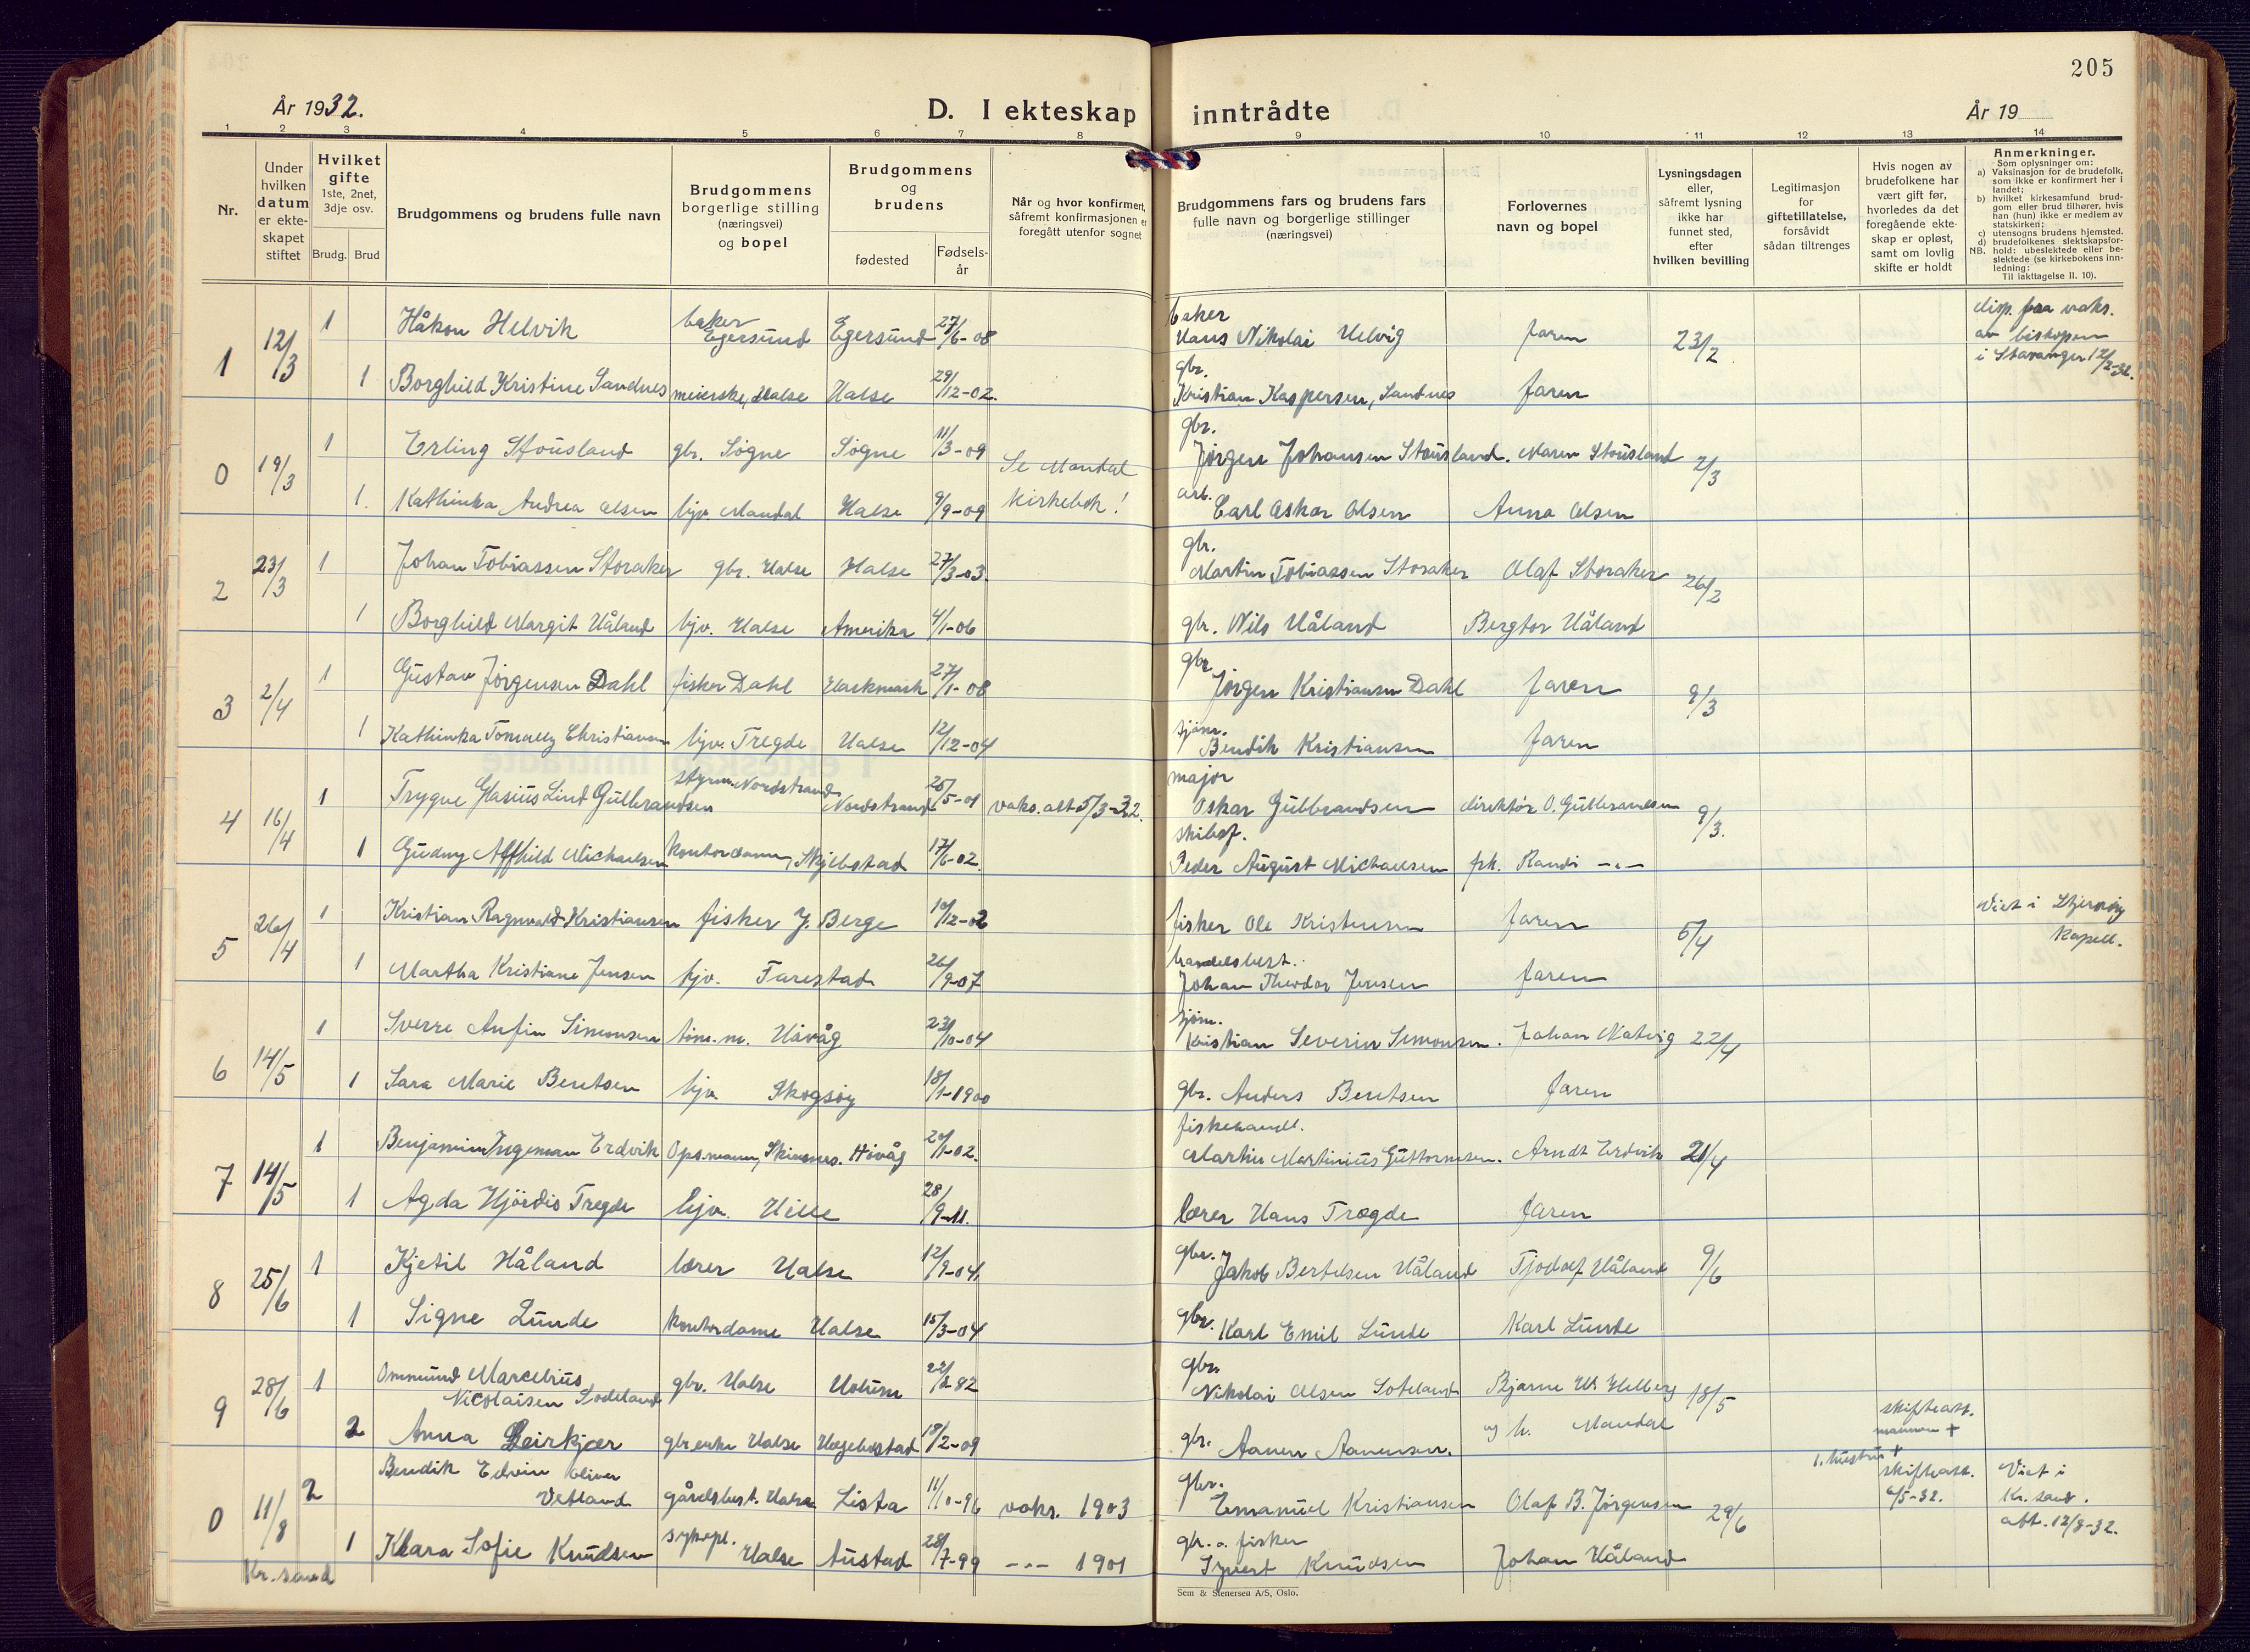 205
År 1932.
D. I ekteskap inntrådte
År 19
1 2 3 4 5 6 7 8 9 10 11 12 13 14
Nr.
Under
hvilken
datum
er ekte-
skapet
stiftet
Hvilket
gifte
1ste, 2net,
3dje osv.
Brudg. Brud
Brudgommens og brudens fulle navn
Brudgommens
borgerlige stilling
(næringsvei)
og bopel
Brudgommens
og
brudens
fødested
Fødsels-
år
Når og hvor konfirmert,
såfremt konfirmasjonen er
foregått utenfor sognet
Brudgommens fars og brudens fars
fulle navn og borgerlige stillinger
(næringsvei)
Forlovernes
navn og bopel
Lysningsdagen
eller,
såfremt lysning
ikke har
funnet sted,
efter
hvilken bevilling
Legitimasjon
for
giftetillatelse,
forsåvidt
sådan tiltrenges
Hvis nogen av
brudefolkene har
vært gift før,
hvorledes da det
foregående ekte-
skap er opløst,
samt om lovlig
skifte er holdt
Anmerkninger.
Som oplysninger om:
a) Vaksinasjon for de brudefolk,
som ikke er konfirmert her i
landet;
b) hvilket kirkesamfund brud-
gom eller brud tilhører, hvis
han (hun) ikke er medlem av
statskirken;
c) utensogns brudens hjemsted.
d) brudefolkenes slektskapsfor-
NB. hold: ubeslektede eller be-
slektede (se kirkebokens inn-
ledning:
Til iakttagelse II. 10).
1 12/3 1 Håkon Helvik baker Egersund Egersund 27/6-08 baker Hans Nikolai Helvig faren 23/2 disp. fra vaks. av biskopen i Stavanger 12/2-32.
1 Borghild Kristine Sandnes meierske, Halse Halse 29/12-02. gbr. Kristian Kaspersen, Sandnes faren
0 19/3 1 Erling Stousland gbr. Søgne Søgne 11/3-09 Se Mandal kirkebok! gbr. Jørgen Johansen Stousland. Maren Stousland 2/3
1. Kathinka Andrea Olsen hjv. Mandal Halse 9/9-09 arb. Carl Oskar Olsen Anna Olsen
2 23/3 1 Johan Tobiassen Storaker gbr. Halse Halse 27/3-03. gbr. Martin Tobiassen Storaker Olaf Storaker 26/2
1 Borghild Margit Håland hjv. Halse Amerika 4/1-06 gbr. Nils Håland Bergtor Håland
3 2/4 1 Gustav Jørgensen Dahl fisker Dahl Harkmark 27/1-08 gbr Jørgen Kristiansen Dahl faren 9/3
1 Kathinka Tomally Christiansen hjv. Tregde Halse 12/12-04 sjøm. Bendik Kristiansen faren
4 16/4 1 Trygve Glasius Lind Gulbrandsen styrm. Nordstrand Nordstrand 25/5-01 vaks. att 5/3-32. major Oskar Gulbrandsen direktør O. Gulbrandsen 9/3.
1 Gudny Alfhild Michaelsen kontordame, Skjebstad 17/6-02. skibsf. Peder August Michaelsen frk. Randi -"-
5 26/4 1 Kristian Ragnvald Kristiansen fisker Y. Berge 10/12-02 fisker Ole Kristensen faren 5/4 Viet i Skjernøy kapell.
1 Martha Kristiane Jensen hjv. Farestad 26/9-07 handelsbest. Johan Theodor Jensen faren
6 14/5 1 Sverre Anfin Simonsen tøm.m. Høvåg 23/10-04 sjøm. Kristian Severin Simonsen. Johan Natvig 22/4
1 Sara Marie Bentsen hjv Skogsøy 18/1-1900 gbr. Anders Bentsen faren
7 14/5 1 Benjamin Ingeman Erdvik Ops.mann, Høvåg 20/11-02. fiskehandl. Martin Martinius Guttormsen. Arndt Erdvik 21/4
1 Agda Hjördis Tregde hjv. Hille 28/9-11. lærer Hans Trægde faren
8 25/6 1 Kjetil Håland lærer Halse 12/9-04. gbr. Jakob Bertelsen Håland Tjodolf Håland 9/6
1 Signe Lunde kontordame Halse 15/3-04 gbr. Karl Emil Lunde Karl Lunde
9 28/6 1 Ommund Marcelius Nicolaisen Sodeland gbr. Halse Holum 22/2-82 gbr. Nikolai Olsen Sodeland Bjarne W. Helberg 18/5
2 Anna Leirkjær gbr.enke Halse Hægebostad 18/2-09 gbr. Aanen Aanensen. og h. Mandal skifteatt. mannen +
0 11/8 2 Bendik Edvin Oliver Vetland gårdsbest. Halse Lista 11/10-96 vaks. 1903 gbr. Emanuel Kristiansen Olaf B. Jørgensen 29/6 1. hustru + skifteatt. 9/5-32. Viet i Kr.sand. att. 12/8-32.
1 Klara Sofie Knudsen sykepl. Halse Austad 28/7-99 -"- 1901 gbr. o. fisker Syvert Knudsen Johan Håland
Kr.sand
Sem & Stenersen A/S, Oslo.